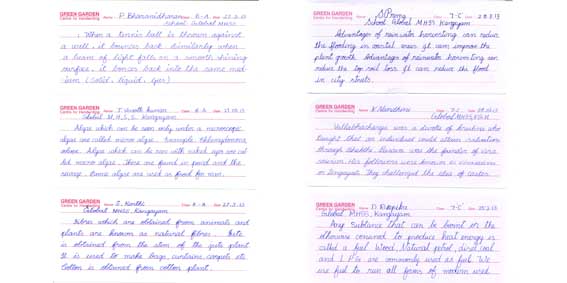 GREEN GARDEN
Centre for Handwriting
Name : P. Bharanidharan Class : 8-A Date : 27.3.13
School Global MHSS
When a tennis ball is thrown against
a well, it bounces back similarly when
a beam of light falls on a smooth shining
surface, it bounces back into the same med-
ium (solid, liquid, gas)
GREEN GARDEN
Centre for Handwriting
Name : T. kumar Class : Date :
Global M.H.S.S. Kangayam
Algae which can be seen only under a microscope
algae are called micro algae. Example Chlamydomonas
volvox. Algae which can be seen with naked eye are cal
led macro algae. These are found in pond and the
sewage. Some algae are used as food for man.
GREEN GARDEN
Centre for Handwriting
Name : Class : 8-A Date : 27.3.13
Global MHSS Kangayam
Fibres which are obtained from animals and
plants are known as natural fibres. Jute
is obtained from the stem of the jute plant
It is used to make bags, curtains, carpets etc
Cotton is obtained from cotton plant.
GREEN GARDEN
Centre for Handwriting
Name : S. Class : 7-C Date : 28.3.13
School Global M.HSS Kangayam
Advantages of rainwater harvesting can reduce
the flooding in coastal areas. It can improve the
plant growth. Advantages of rainwater harvesting can
reduce the top soil loss. It can reduce the flood
in city streets.
GREEN GARDEN
Centre for Handwriting
Name : K. Nandhini Class : Date :
Global MHSS, KGM
Vallabhacharya was a devote of krishna who
thought that an individual could attain salvation
through bhakthi. Basava was the founder of vira
saivism. His followers were known as virasaivas
or lingayats. They challenged the idea of caster.
GREEN GARDEN
Centre for Handwriting
Name : D. Class : 7-C Date :
Global M.HSS, Kangayam
Any Substance that can be burnt or
otherwise consumed to produce heat energy is
called a fuel. Wood, Natural petrol, diesel, coal
and L.P.G are commonly used as fuel. We
use fuel to run all forms of modern used